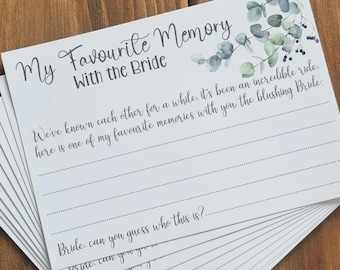 My Favourite Memory
With the Bride
We've known each other for a while, it's been an incredible ride,
here is one of my favourite memories with you, the blushing Bride.
Bride, can you guess who this is?
Bride, can you guess